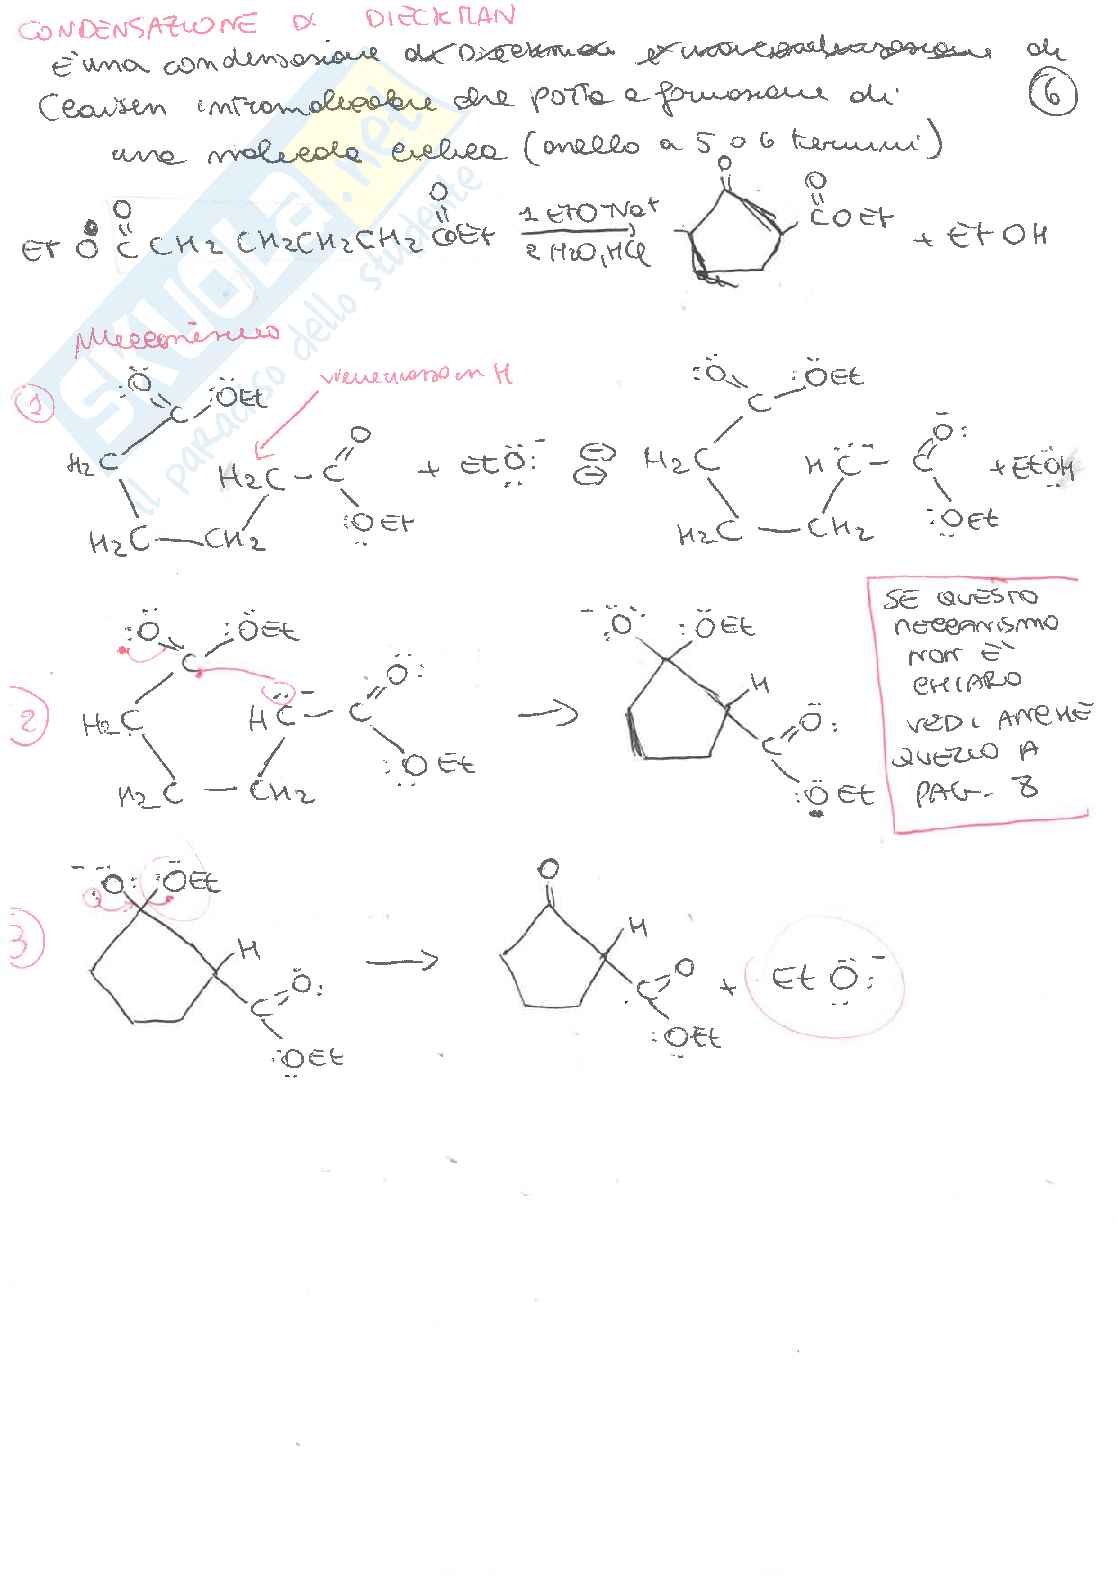 CONDENSAZIONE DI DIECKMAN
È una condensazione di
Claisen intramolecolare che porta a formazione di
una molecola ciclica (anello a 5 o 6 termini)
6
EtO C CH2 CH2CH2CH2 COEt 1 EtO-Na+ COEt + EtOH
O O 2 H2O, HCl O O
Meccanismo
1
viene mosso un H
:O: :OEt H2C H2C - C O + EtO:- :OEt H2C CH2
:O: :OEt H2C HC:- - C O: + EtOH :OEt H2C - CH2
2
:O: :OEt C H2C HC:- - C O: OEt H2C - CH2
-:O: :OEt H C O: :OEt
SE QUESTO
MECCANISMO
NON È
CHIARO
VEDI ANCHE
QUELLO A
PAG. 8
3
-:O: :OEt H C O: :OEt
O H C O :OEt + EtO:-
SKUOLA.net
il paradiso dello studente